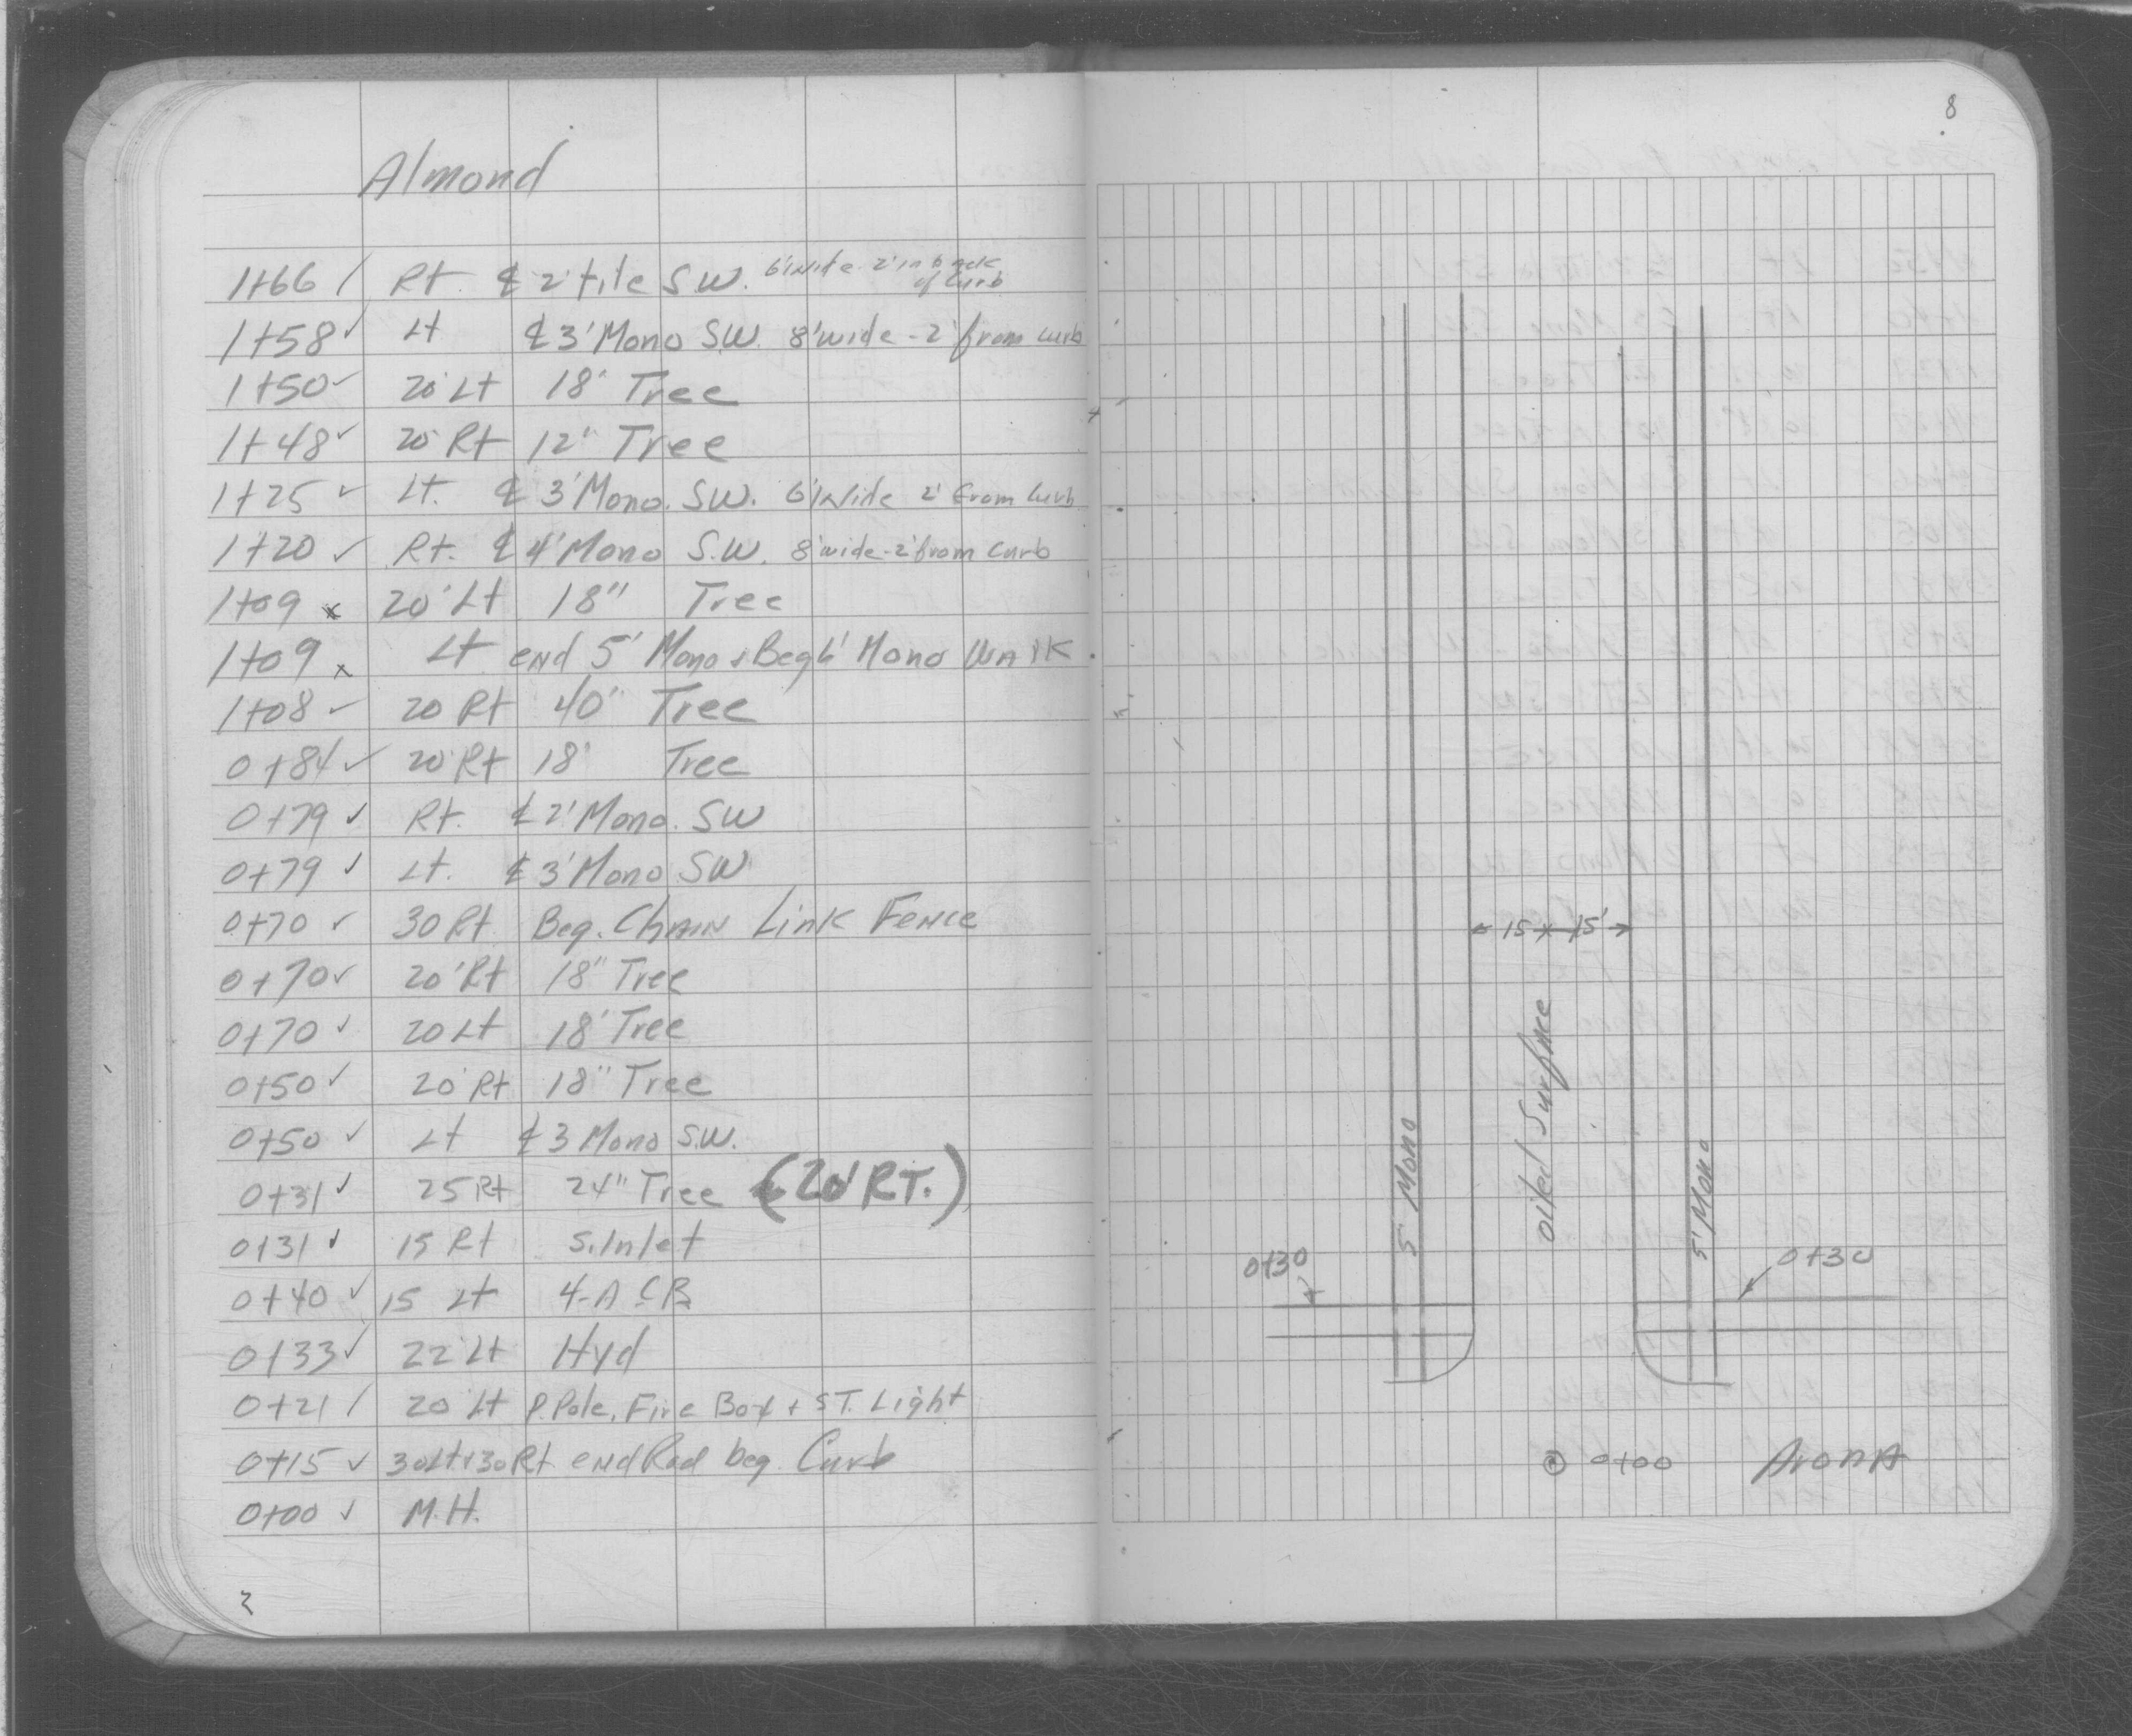 8
Almond
1+66 / Rt ℄ 2' tile S.W. 6' wide 2' in back of curb
1+58 ✓ Lt ℄ 3' Mono S.W. 8' wide - 2' from curb
1+50 ✓ 20' Lt 18" Tree
1+48 ✓ 20' Rt 12" Tree
1+25 ✓ Lt. ℄ 3' Mono. S.W. 6' Wide 2' from Curb
1+20 ✓ Rt. ℄ 4' Mono S.W. 8' wide - 2' from Curb
1+09 x 20' Lt 18" Tree
1+09 x Lt end 5' Mono + Beg 6' Mono Walk
1+08 ✓ 20 Rt 40" Tree
0+84 ✓ 20' Rt 18" Tree
0+79 ✓ Rt. ℄ 2' Mono. SW
0+79 ✓ Lt. ℄ 3' Mono SW
0+70 ✓ 30 Rt Beg. Chain Link Fence
0+70 ✓ 20' Rt 18" Tree
0+70 ✓ 20 Lt 18" Tree
0+50 ✓ 20' Rt 18" Tree
0+50 ✓ Lt ℄ 3 Mono S.W.
0+31 ✓ 25 Rt 24" Tree (20' RT.)
0+31 ✓ 15 Rt S. Inlet
0+40 ✓ 15 Lt 4-A C.B.
0+33 ✓ 22' Lt Hyd
0+21 / 20' Lt P. Pole, Fire Box + ST. Light
0+15 ✓ 30Lt+30Rt end Rad beg. Curb
0+00 ✓ M.H.
15 15'
Oiled Surface
5' Mono
5' Mono
0+30
0+30
0+00 Arona